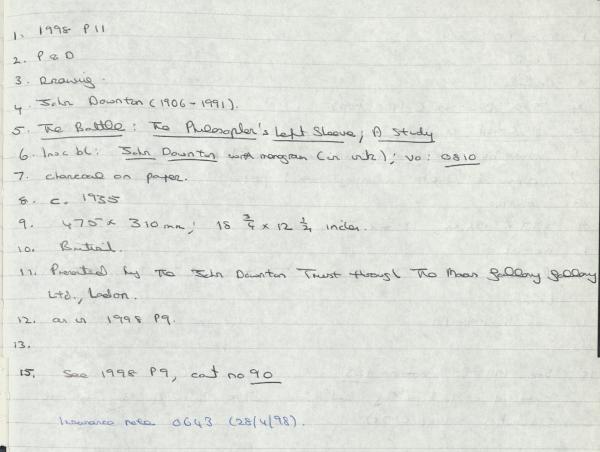 1. 1998 P11
2. P & D
3. Drawing.
4. John Downton (1906-1991).
5. The Battle: The Philosopher's Left Sleeve; A Study
6. Insc bl: John Downton with monogram (in ink); vo: 0810
7. charcoal on paper.
8. c. 1935
9. 475 x 310 mm; 18 3/4 x 12 1/4 inches.
10. British.
11. Presented by The John Downton Trust through The Maas Gallery Gallery
Ltd., London.
12. as in 1998 P9.
13.
15. See 1998 P9, cat no 90
Insurance note 0643 (28/4/98).